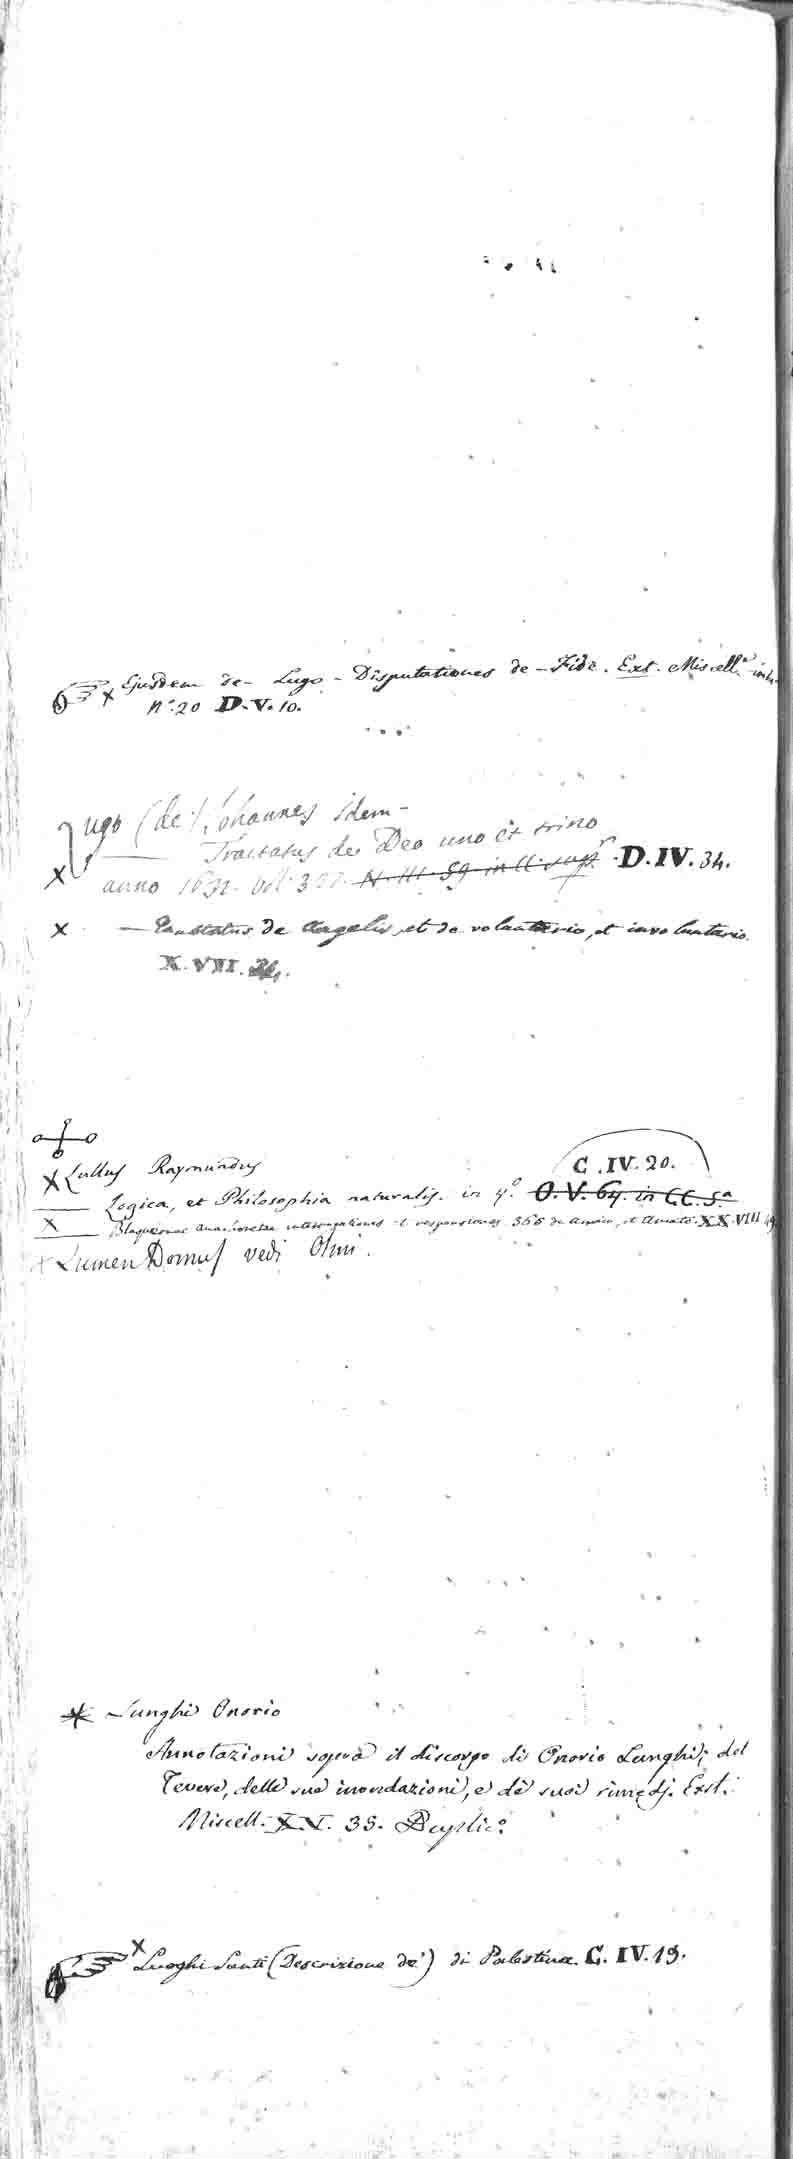 Ejusdem de- Lugo - Disputationes de - Fide. Ext. Miscell.ª in
N.º 20 D.V. 10.
Lugo (de) Johannes idem-
Tractatus de Deo uno et trino
anno 1632. vol. N. III. 59 in D.IV. 34.
— Tractatus de Angelis, et de voluntario, et involuntario
X.VIII.
C.IV.20.
Lullus Raymundus
Logica, et Philosophia naturalis. in 4.º O.V. 64. in CC. S.ª
Blaquernae anachoretae interrogationes et responsiones 365 de amico, et amato. XX.VIII 49
Lumen Domus vedi Olmi.
Lunghi Onorio
Annotazioni sopra il discorso di Onorio Lunghi; del
Tevere, delle sue inondazioni, e de suoi rimedj. Exst.
Miscell. XV. 35. Duplic.º
Luoghi Santi (Descrizione de') di Palestina. C. IV. 19.